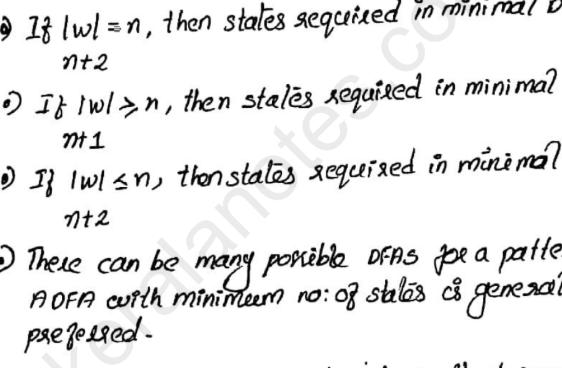 If |w| = n, then states required in minimal D
n+2
If |w| ≥ n, then states required in minimal
n+1
If |w| ≤ n, then states required in minimal
n+2
There can be many possible DFAs for a patte
A DFA with minimum no: of states is general
preferred.
keralanotes.co